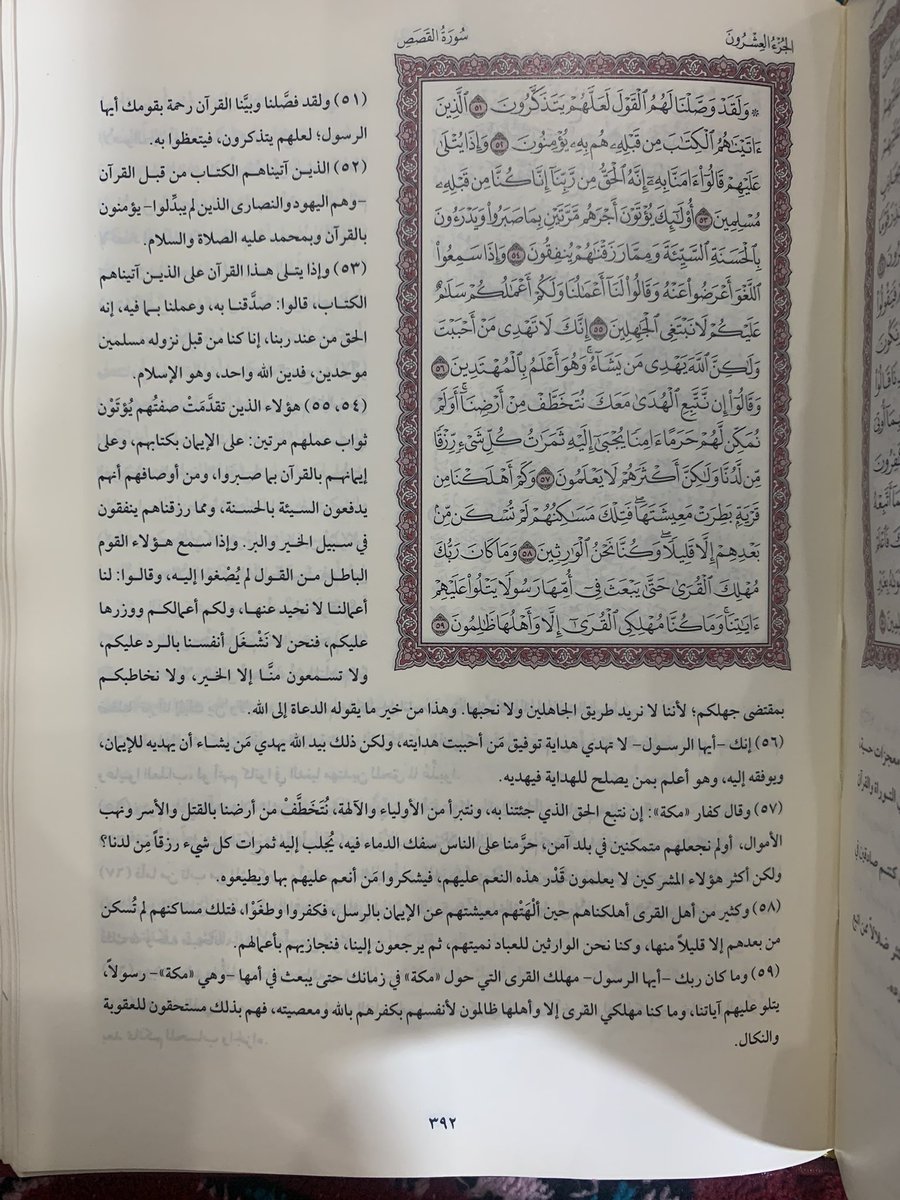 الجُزْءُ العِشْرُونَ
سُورَةُ القَصَصِ
۞ وَلَقَدْ وَصَّلْنَا لَهُمُ ٱلْقَوْلَ لَعَلَّهُمْ يَتَذَكَّرُونَ ٥١ ٱلَّذِينَ
ءَاتَيْنَٰهُمُ ٱلْكِتَٰبَ مِن قَبْلِهِۦ هُم بِهِۦ يُؤْمِنُونَ ٥٢ وَإِذَا يُتْلَىٰ
عَلَيْهِمْ قَالُوٓا۟ ءَامَنَّا بِهِۦٓ إِنَّهُ ٱلْحَقُّ مِن رَّبِّنَآ إِنَّا كُنَّا مِن قَبْلِهِۦ
مُسْلِمِينَ ٥٣ أُو۟لَٰٓئِكَ يُؤْتَوْنَ أَجْرَهُم مَّرَّتَيْنِ بِمَا صَبَرُوا۟ وَيَدْرَءُونَ
بِٱلْحَسَنَةِ ٱلسَّيِّئَةَ وَمِمَّا رَزَقْنَٰهُمْ يُنفِقُونَ ٥٤ وَإِذَا سَمِعُوا۟
ٱللَّغْوَ أَعْرَضُوا۟ عَنْهُ وَقَالُوا۟ لَنَآ أَعْمَٰلُنَا وَلَكُمْ أَعْمَٰلُكُمْ سَلَٰمٌ
عَلَيْكُمْ لَا نَبْتَغِى ٱلْجَٰهِلِينَ ٥٥ إِنَّكَ لَا تَهْدِى مَنْ أَحْبَبْتَ
وَلَٰكِنَّ ٱللَّهَ يَهْدِى مَن يَشَآءُ ۚ وَهُوَ أَعْلَمُ بِٱلْمُهْتَدِينَ ٥٦
وَقَالُوٓا۟ إِن نَّتَّبِعِ ٱلْهُدَىٰ مَعَكَ نُتَخَطَّفْ مِنْ أَرْضِنَآ ۚ أَوَلَمْ
نُمَكِّن لَّهُمْ حَرَمًا ءَامِنًا يُجْبَىٰٓ إِلَيْهِ ثَمَرَٰتُ كُلِّ شَىْءٍ رِّزْقًا
مِّن لَّدُنَّا وَلَٰكِنَّ أَكْثَرَهُمْ لَا يَعْلَمُونَ ٥٧ وَكَمْ أَهْلَكْنَا مِن
قَرْيَةٍۭ بَطِرَتْ مَعِيشَتَهَا ۖ فَتِلْكَ مَسَٰكِنُهُمْ لَمْ تُسْكَن مِّنۢ
بَعْدِهِمْ إِلَّا قَلِيلًا ۖ وَكُنَّا نَحْنُ ٱلْوَٰرِثِينَ ٥٨ وَمَا كَانَ رَبُّكَ
مُهْلِكَ ٱلْقُرَىٰ حَتَّىٰ يَبْعَثَ فِىٓ أُمِّهَا رَسُولًا يَتْلُوا۟ عَلَيْهِمْ
ءَايَٰتِنَا ۚ وَمَا كُنَّا مُهْلِكِى ٱلْقُرَىٰٓ إِلَّا وَأَهْلُهَا ظَٰلِمُونَ ٥٩
(٥١) ولقد فصَّلنا وبيَّنا القرآن رحمة بقومك أيها
الرسول؛ لعلهم يتذكرون، فيتعظوا به.
(٥٢) الذين آتيناهم الكتاب من قبل القرآن
-وهم اليهود والنصارى الذين لم يبدِّلوا- يؤمنون
بالقرآن وبمحمد عليه الصلاة والسلام.
(٥٣) وإذا يتلى هذا القرآن على الذين آتيناهم
الكتاب، قالوا: صدَّقنا به، وعملنا بما فيه، إنه
الحق من عند ربنا، إنا كنا من قبل نزوله مسلمين
موحدين، فدين الله واحد، وهو الإسلام.
(٥٤، ٥٥) هؤلاء الذين تقدَّمَتْ صفتُهم يُؤتَوْن
ثواب عملهم مرتين: على الإيمان بكتابهم، وعلى
إيمانهم بالقرآن بما صبروا، ومن أوصافهم أنهم
يدفعون السيئة بالحسنة، ومما رزقناهم ينفقون
في سبيل الخير والبر. وإذا سمع هؤلاء القوم
الباطل من القول لم يُصْغوا إليه، وقالوا: لنا
أعمالنا لا نحيد عنها، ولكم أعمالكم ووزرها
عليكم، فنحن لا نَشْغَل أنفسنا بالرد عليكم،
ولا تسمعون منَّا إلا الخير، ولا نخاطبكم
بمقتضى جهلكم؛ لأننا لا نريد طريق الجاهلين ولا نحبها. وهذا من خير ما يقوله الدعاة إلى الله.
(٥٦) إنك -أيها الرسول- لا تهدي هداية توفيق مَن أحببت هدايته، ولكن ذلك بيد الله يهدي مَن يشاء أن يهديه للإيمان،
ويوفقه إليه، وهو أعلم بمن يصلح للهداية فيهديه.
(٥٧) وقال كفار «مكة»: إن نتبع الحق الذي جئتنا به، ونتبرأ من الأولياء والآلهة، نُتَخَطَّفْ من أرضنا بالقتل والأسر ونهب
الأموال، أولم نجعلهم متمكنين في بلد آمن، حرَّمنا على الناس سفك الدماء فيه، يُجلب إليه ثمرات كل شيء رزقاً مِن لدنا؟
ولكن أكثر هؤلاء المشركين لا يعلمون قَدْر هذه النعم عليهم، فيشكروا مَن أنعم عليهم بها ويطيعوه.
(٥٨) وكثير من أهل القرى أهلكناهم حين ألْهَتْهم معيشتهم عن الإيمان بالرسل، فكفروا وطغَوْا، فتلك مساكنهم لم تُسكن
من بعدهم إلا قليلاً منها، وكنا نحن الوارثين للعباد نميتهم، ثم يرجعون إلينا، فنجازيهم بأعمالهم.
(٥٩) وما كان ربك -أيها الرسول- مهلك القرى التي حول «مكة» في زمانك حتى يبعث في أمها -وهي «مكة»- رسولاً،
يتلو عليهم آياتنا، وما كنا مهلكي القرى إلا وأهلها ظالمون لأنفسهم بكفرهم بالله ومعصيته، فهم بذلك مستحقون للعقوبة
والنكال.
٣٩٢